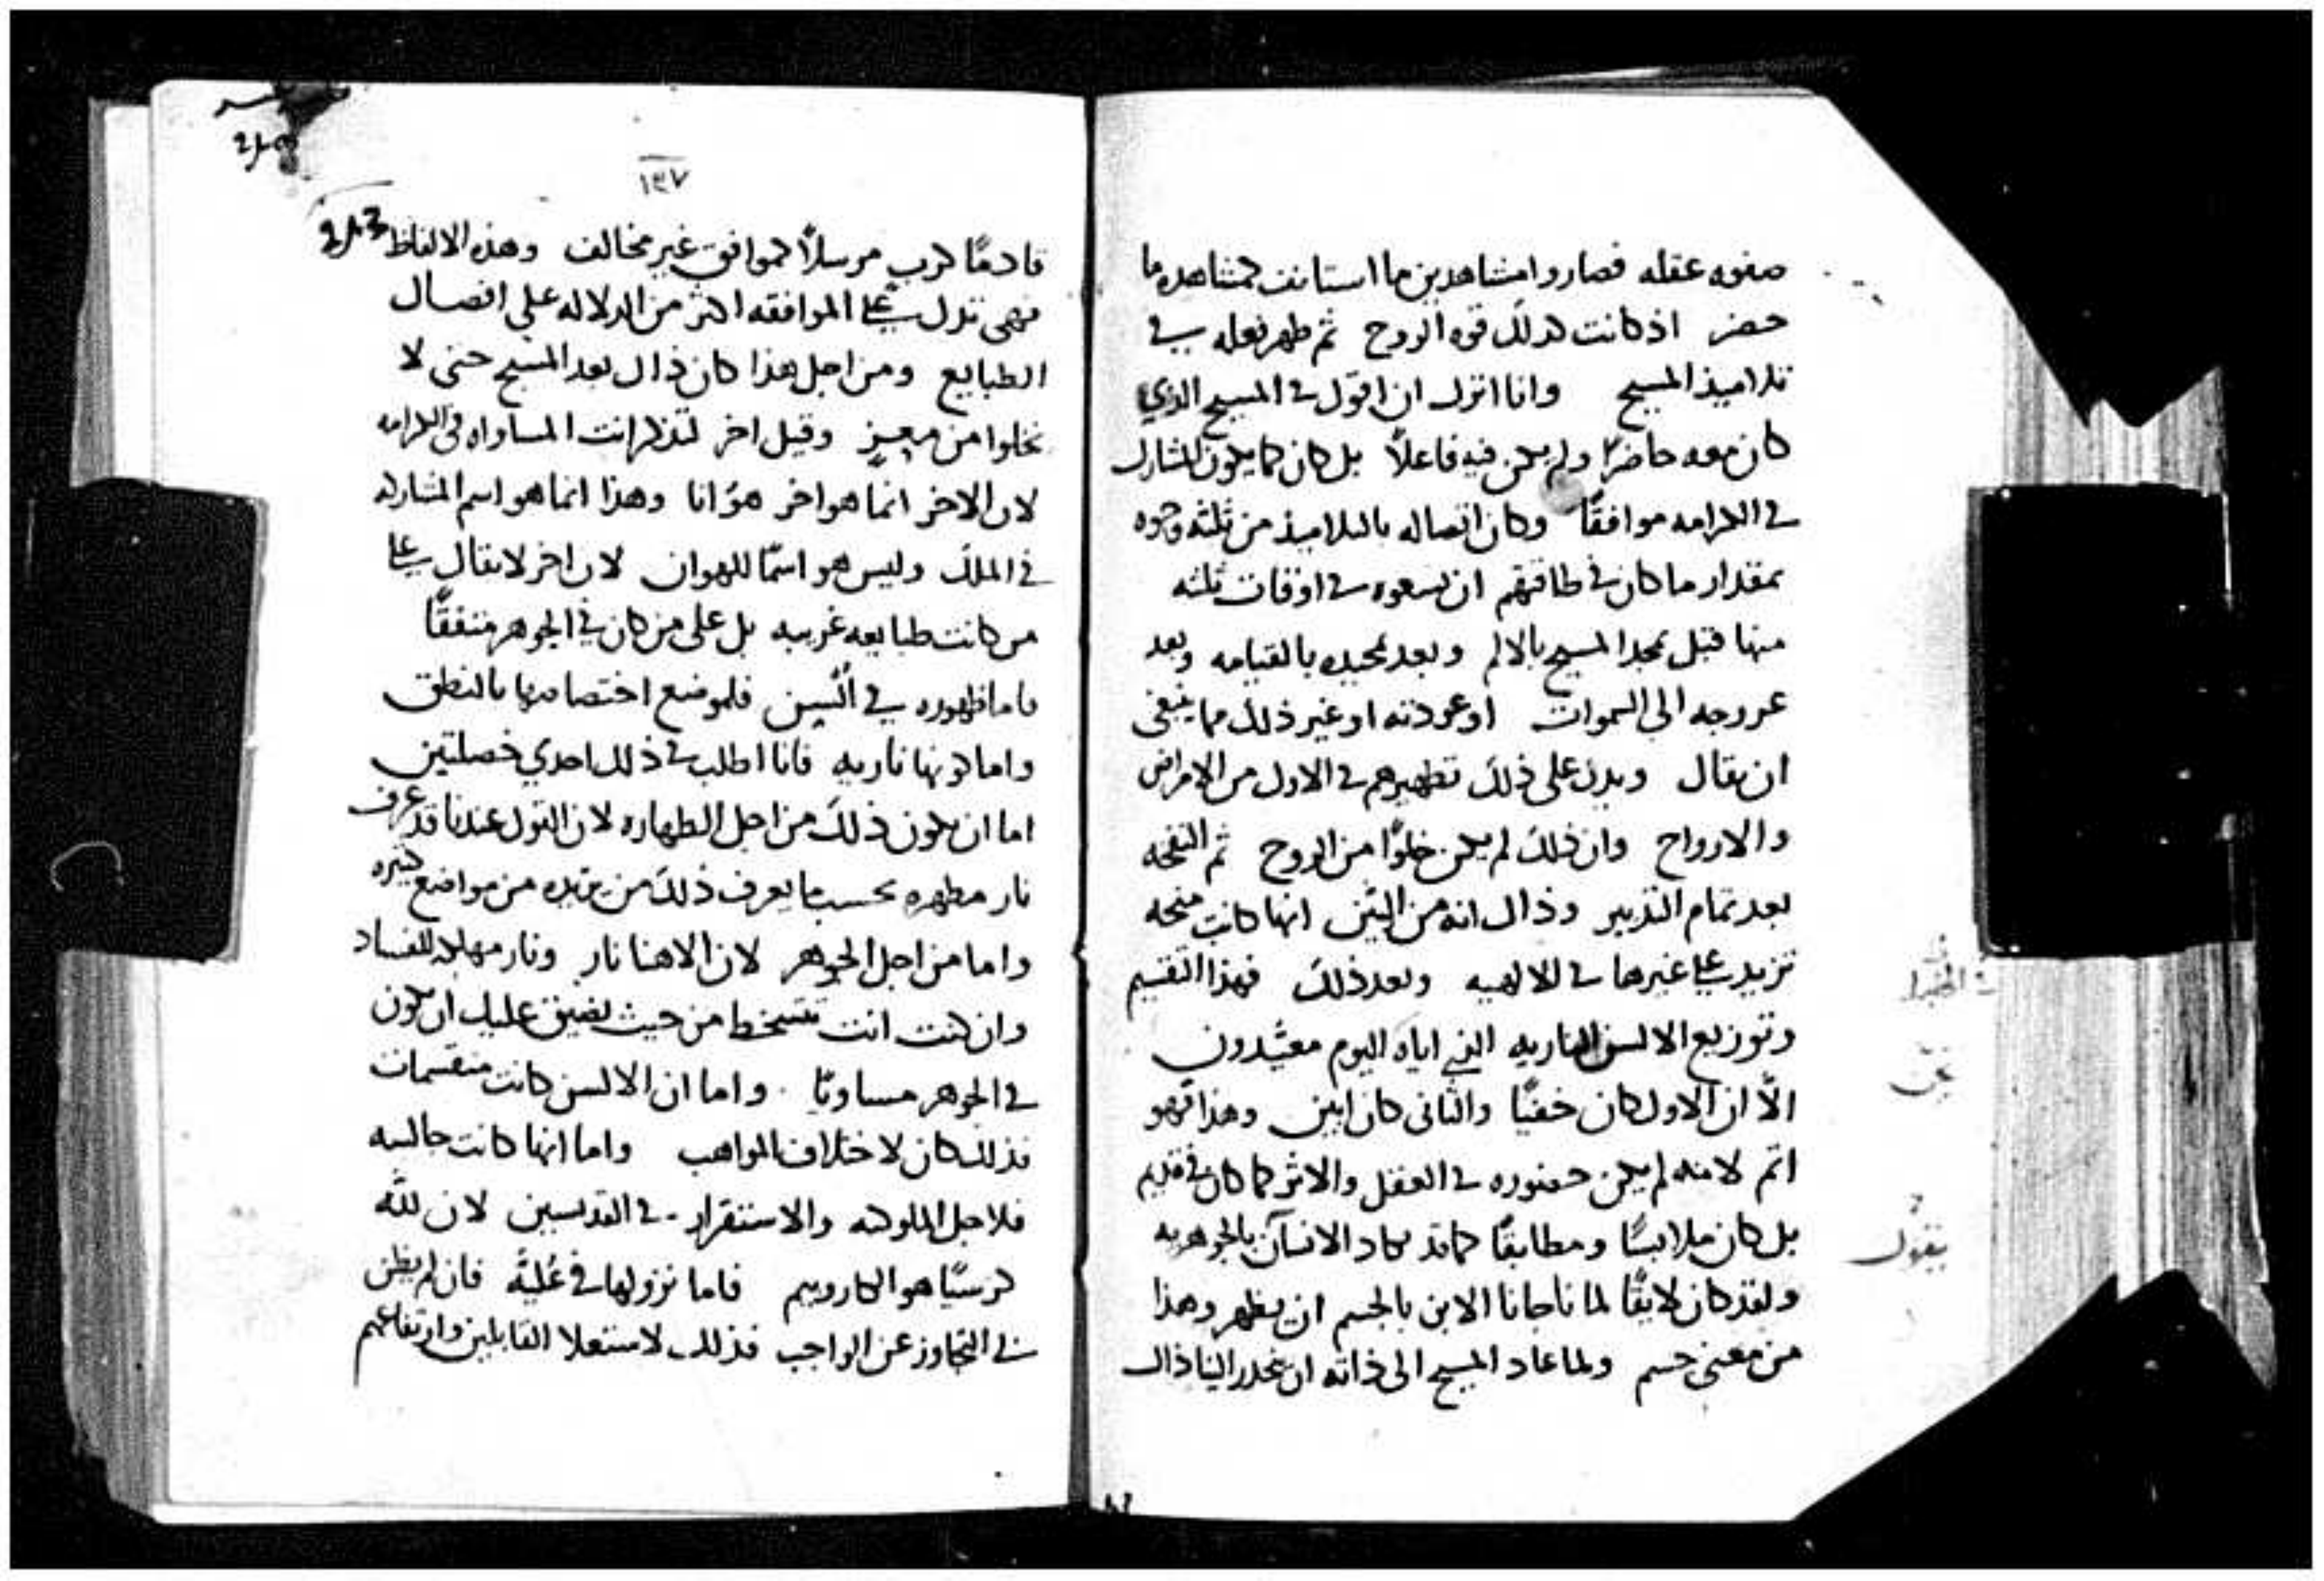 صفوه عقله فصاروا مشاهدين ما استانف كمشاهده ما
حضر اذ كانت كذلك قوه الروح ثم ظهر فعله في
تلاميذ المسيح وانا اترك ان اقول في المسيح الذي
كان معه حاضرًا ولم يكن فيه فاعلًا بل كان كما يكون المشارك
في الكرامه موافقًا وكان اتصاله بالتلاميذ من ثلثه وجوه
بمقدار ما كان في طاقتهم ان يسعوه في اوقات ثلثه
منها قبل مجد المسيح بالالم وبعد تمجيده بالقيامه وبعد
عروجه الى السموات او عودته او غير ذلك مما ينبغى
ان يقال ويدل على ذلك تطهيرهم في الاول من الامراض
والارواح وان ذلك لم يكن خلوًا من الروح ثم النفخه
بعد تمام التدبير وذاك انه من البيّن انها كانت منحه
تزيد على غيرها في الالهيه وبعد ذلك فهذا التقسيم
وتوزيع الالسن الناريه التي اياه اليوم معيّدون
الّا ان الاول كان خفيًا والثانى كان ابين وهذا فهو
اتم لانه لم يكن حضوره في الفعل والاثر كما كان في قديم
بل كان ملابسًا ومطابقًا كما قد يكاد الانسان بالجوهريه
ولقد كان لايقًا لما ناجانا الابن بالجسم ان يظهر وهذا
من معنى جسم ولما عاد المسيح الى ذاته ان ينحدر الينا ذاك
في
عن
يقول
١٣٧
قادمًا كرب مرسلًا كموافق غير مخالف وهذه الالفاظ
فهى تدل على الموافقه اكثر من الدلاله على انفصال
الطبايع ومن اجل هذا كان ذاك بعد المسيح حتى لا
نخلوا من معزٍ وقيل اخر لتذكر انت المساواه في الكرامه
لان الاخر انما هو اخر هو انا وهذا انما هو اسم المشاركه
في الملك وليس هو اسمًا للهوان لان اخر لا يقال على
من كانت طبايعه غريبه بل على من كان في الجوهر متفقًا
فاما ظهوره في السن فلموضع اختصاصها بالنطق
واما كونها ناريه فانا اطلب في ذلك احدي خصلتين
اما ان يكون ذلك من اجل الطهاره لان القول عندنا قد عرف
نار مطهره بحسب ما يعرف ذلك من يريده من مواضع كثيره
واما من اجل الجوهر لان الاهنا نار ونار مهلكه للفساد
وان كنت انت تتسخط من حيث يضيق عليك ان يكون
في الجوهر مساويًا واما ان الالسن كانت منقسمات
فذلك كان لاختلاف المواهب واما انها كانت جالسه
فلاجل الملوكيه والاستقرار في القديسين لان للّه
كرسيًا هو الكاروبيم فاما نزولها في عُليّه فان لم يظن
في التجاوز عن الواجب فذلك لاستعلا القابلين وارتفاعهم